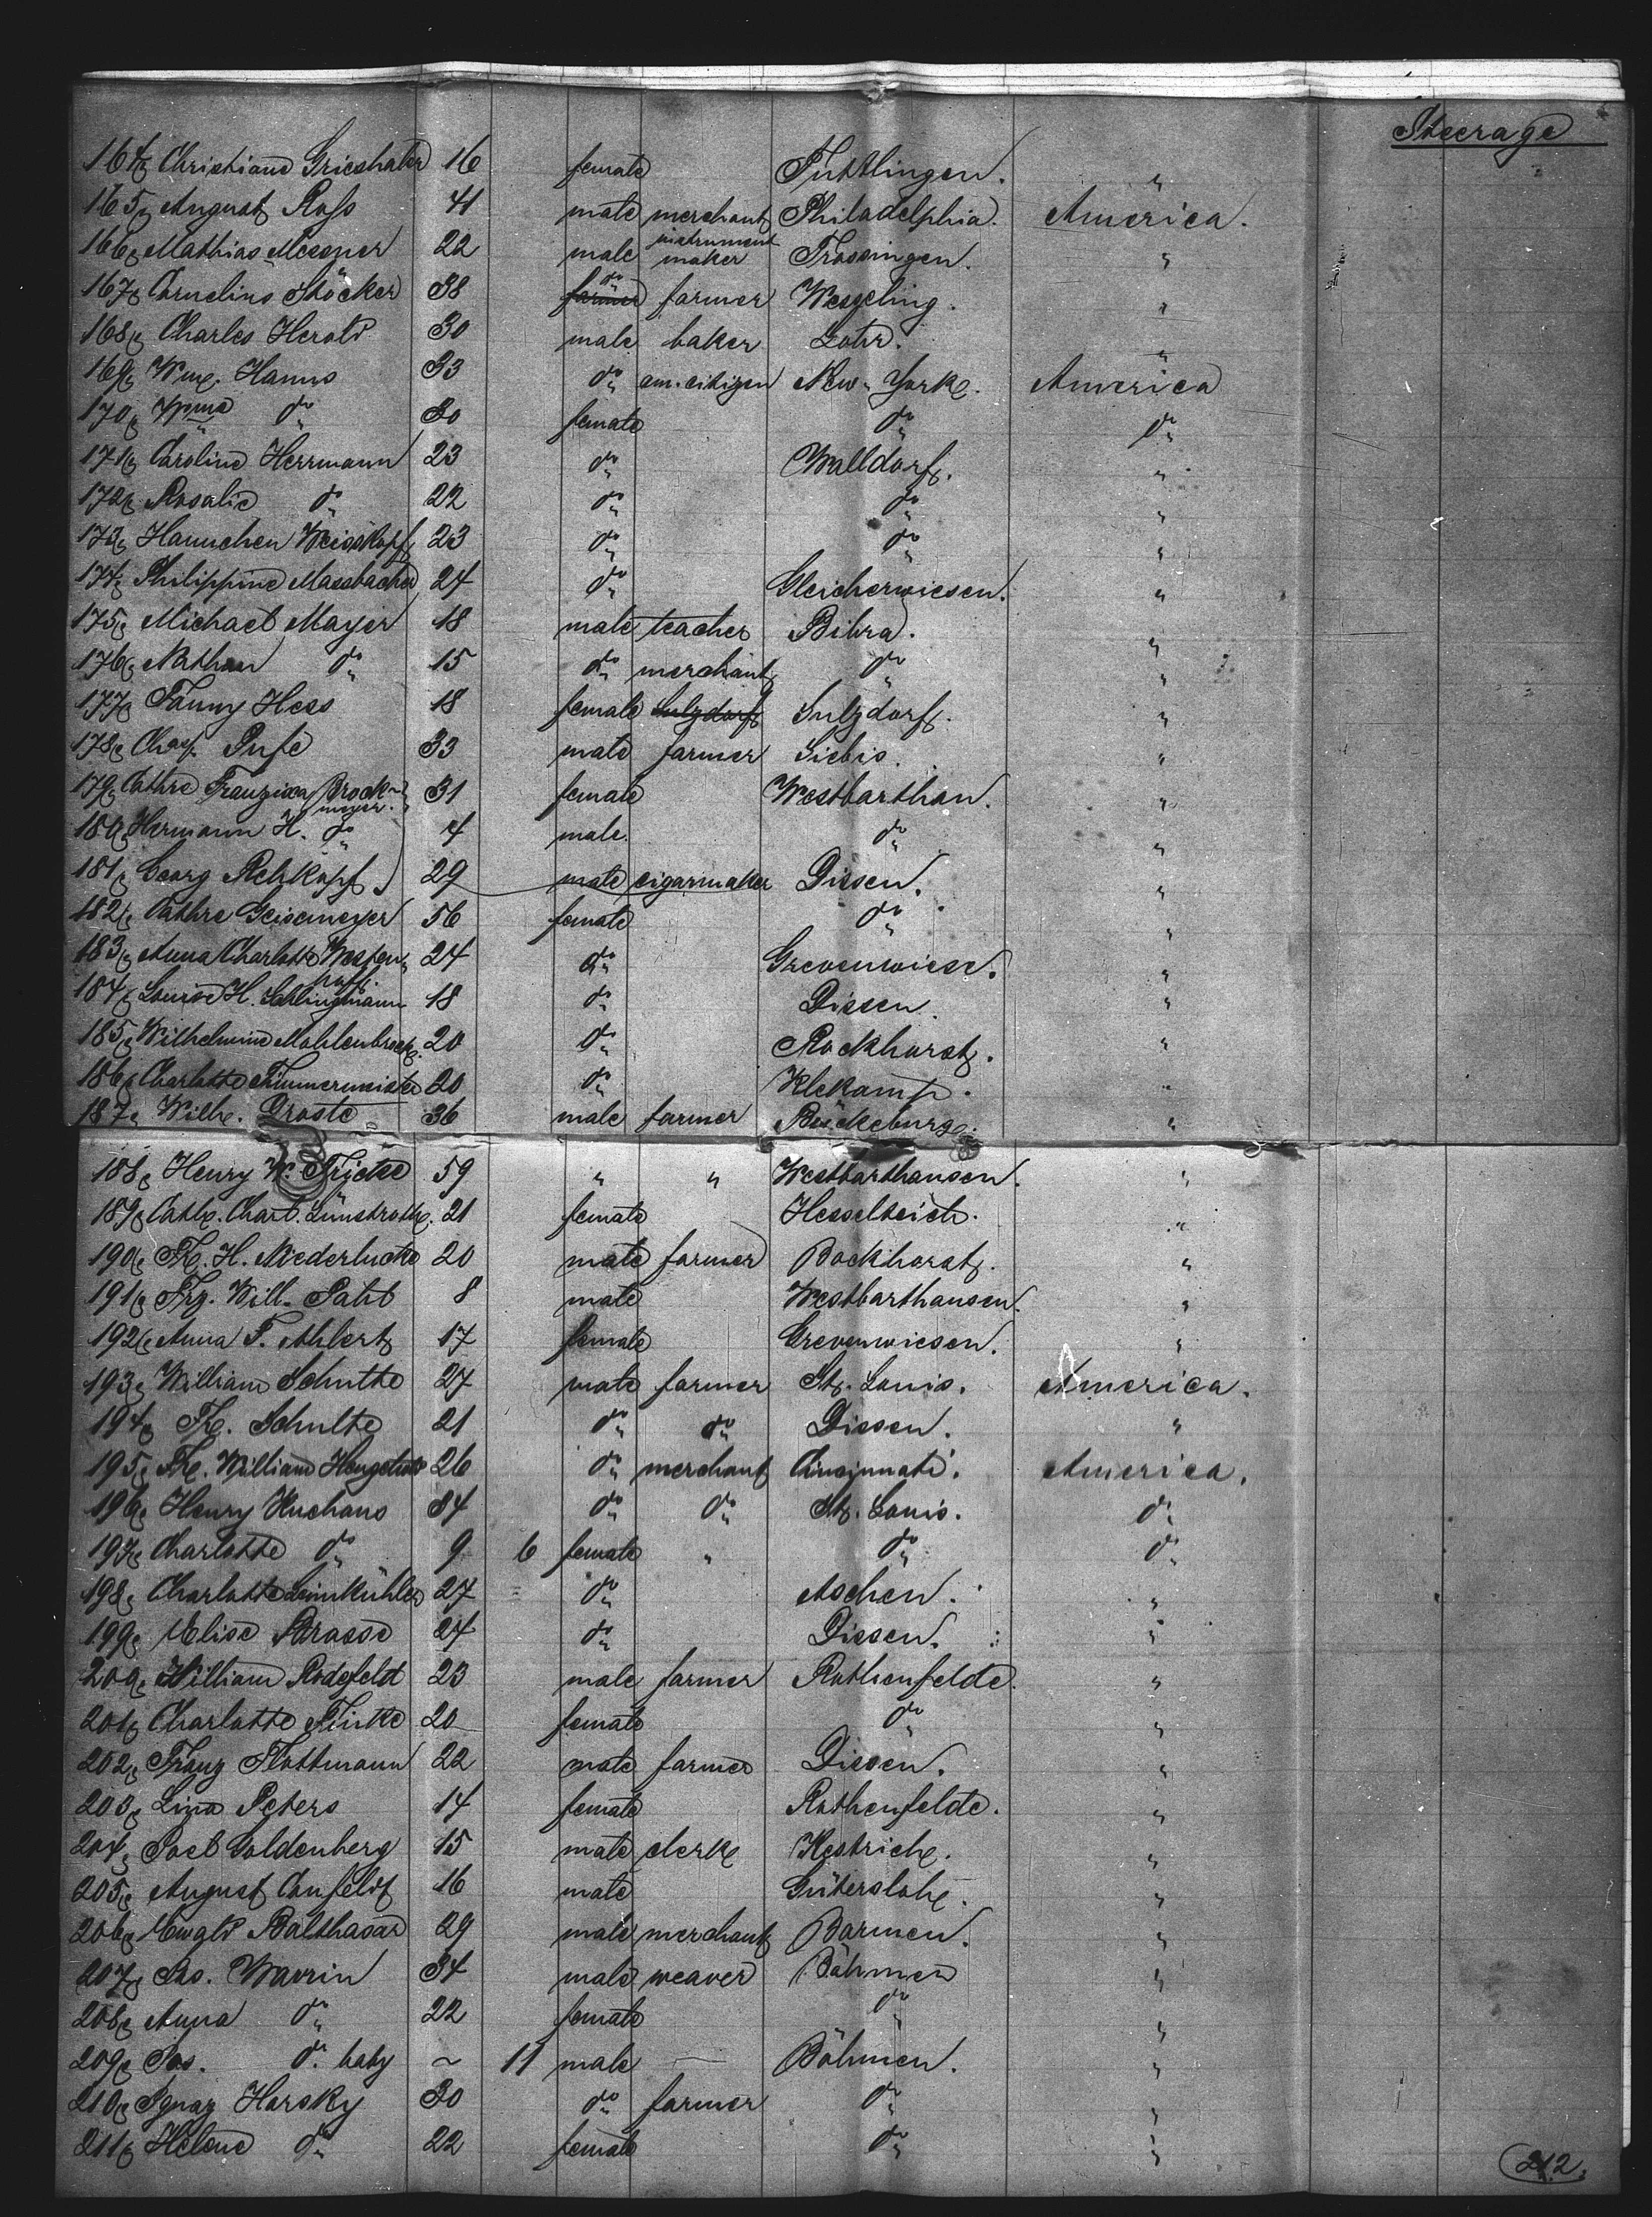 Steerage
164, Christiane Grieshaber 16 female Tuttlingen. "
165, August Ross 41 male merchant Philadelphia. America.
166, Mathias Messner 22 male instrument maker Trossingen. "
167, Cornelius Stöcker 38 do farmer Wesseling. "
168, Charles Herold 30 male baker Lohr. "
169, Wm. Hanns 33 do am. citizen New-York. America
170, do 30 female do do
171, Caroline Herrmann 23 do Walldorf. "
172, Rosalie do 22 do do "
173, Hannchen Weisskopf 23 do do "
174, Philippine Massbacher 24 do Gleicherwiesen. "
175, Michael Mayer 18 male teacher Bibra. "
176, Nathan do 15 do merchant do "
177, Fanny Hess 18 female Sulzdorf Sulzdorf. "
178, Chas. Pufe 33 male farmer Siebis. "
179, Cathre Franziska Brockmeyer. 31 female Westbarthan. "
180, Hermann H. do 4 male. do "
181, Georg Rehkopf 29 male cigarmaker Dissen. "
182, Cathre Geisemeyer 56 female do "
183, Anna Charlotte Westen- 24 do Grevenwiese. "
184, Louise H. Schlingmann 18 do Dissen. "
185, Wilhelmine Mohlenbrock. 20 do Rockhorst. "
186, Charlotte Timmermeister 20 do Klekamp. "
187, Wilh. Droste 36 male farmer Bückeburg. "
188, Henry W. 59 " " Westbarthausen. "
189, Cath. Charl. Lünstroth. 21 female Hesselteich. "
190, Fr. H. Niederlucke 20 male farmer Bockhorst. "
191, Frz. Will. Pahl 8 male Westbarthausen. "
192, Anna F. Ahlert 17 female Grevenwiesen. "
193, William Schulte 27 male farmer St. Louis. America.
194, Fr. Schulte 21 do do Dissen. "
195, Fr. William 26 do merchant Cincinnati. America.
196, Henry Huchans 34 do do St. Louis. do
197, Charlotte do 9 6 female " do do
198, Charlotte Leimkühler 27 do Aschen. "
199, Elise Brasse 24 do Dissen. "
200, William Rodefeld 23 male farmer Rothenfelde. "
201, Charlotte Finke 20 female do "
202, Franz Flottmann 22 male farmer Dissen. "
203, Lina Peters 14 female Rothenfelde. "
204, Joel Goldenberg 15 male clerk Kestrich. "
205, August Canfeldt 16 male Gütersloh. "
206, Ewald Balthasar 29 male merchant Barmen. "
207, Jos. Wavrin 34 male weaver Böhmen "
208, Anna do 22 female do "
209, Jos. do. baby ~ 11 male — Böhmen. "
210, Ignaz Horsky 30 do farmer do "
211, Helene do 22 female do "
212.